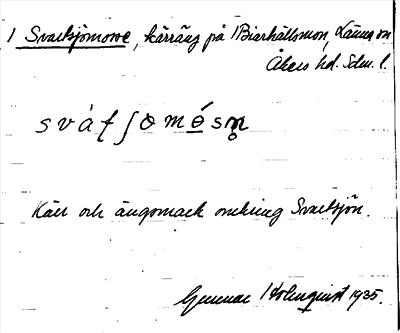 1 Svartsjömosse, kärräng på 1 Biarhällsmon, Länna sn
Åkers hd. Sdm. l.
Kärr och ängsmark omkring Svartsjön.
Gunnar Holmquist 1935.